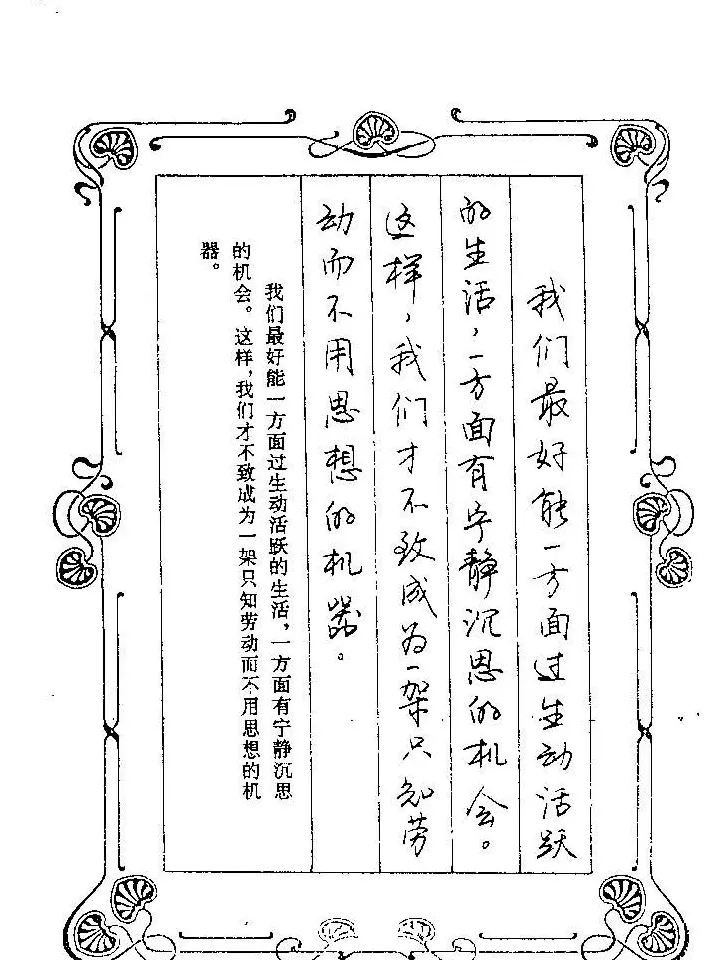 我们最好能一方面过生动活跃
的生活，一方面有宁静沉思的机会。
这样，我们才不致成为一架只知劳
动而不用思想的机器。
我们最好能一方面过生动活跃的生活，一方面有宁静沉思
的机会。这样，我们才不致成为一架只知劳动而不用思想的机
器。